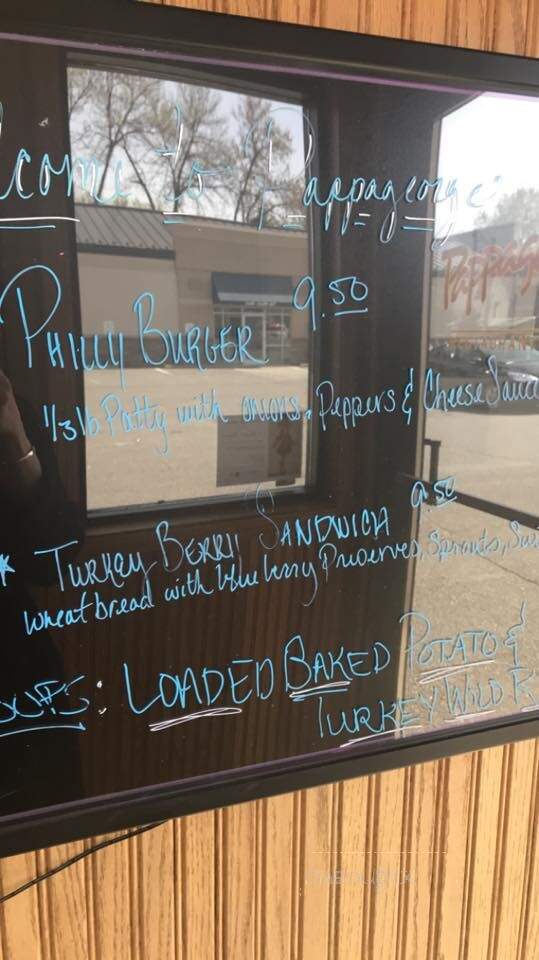 lcome to Pappageorge
Pappage
PHILLY BURGER 9.50
1/3 lb Patty with onions, Peppers & Cheese Sauc
* TURKEY BERRY SANDWICH 9.50
wheat bread with blueberry Preserves, Sprouts,
: LOADED BAKED POTATO &
TURKEY WILD R